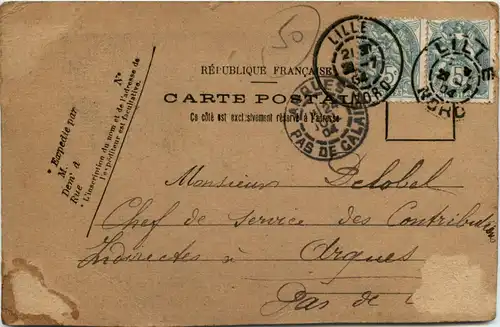 50
LILLE
NORD
LILLE
NORD
04
RÉPUBLIQUE FRANÇAISE
CARTE POSTALE
Ce côté est exclusivement réservé à l'adresse
ARQUES
PAS DE CALAIS
04
* Expédié par
M.
Dem^t à
Rue
N°
* L'inscription du nom et de l'adresse de
l'expéditeur est facultative.
Monsieur Delobel
Chef de service des Contributions
Indirectes à Arques
Pas de